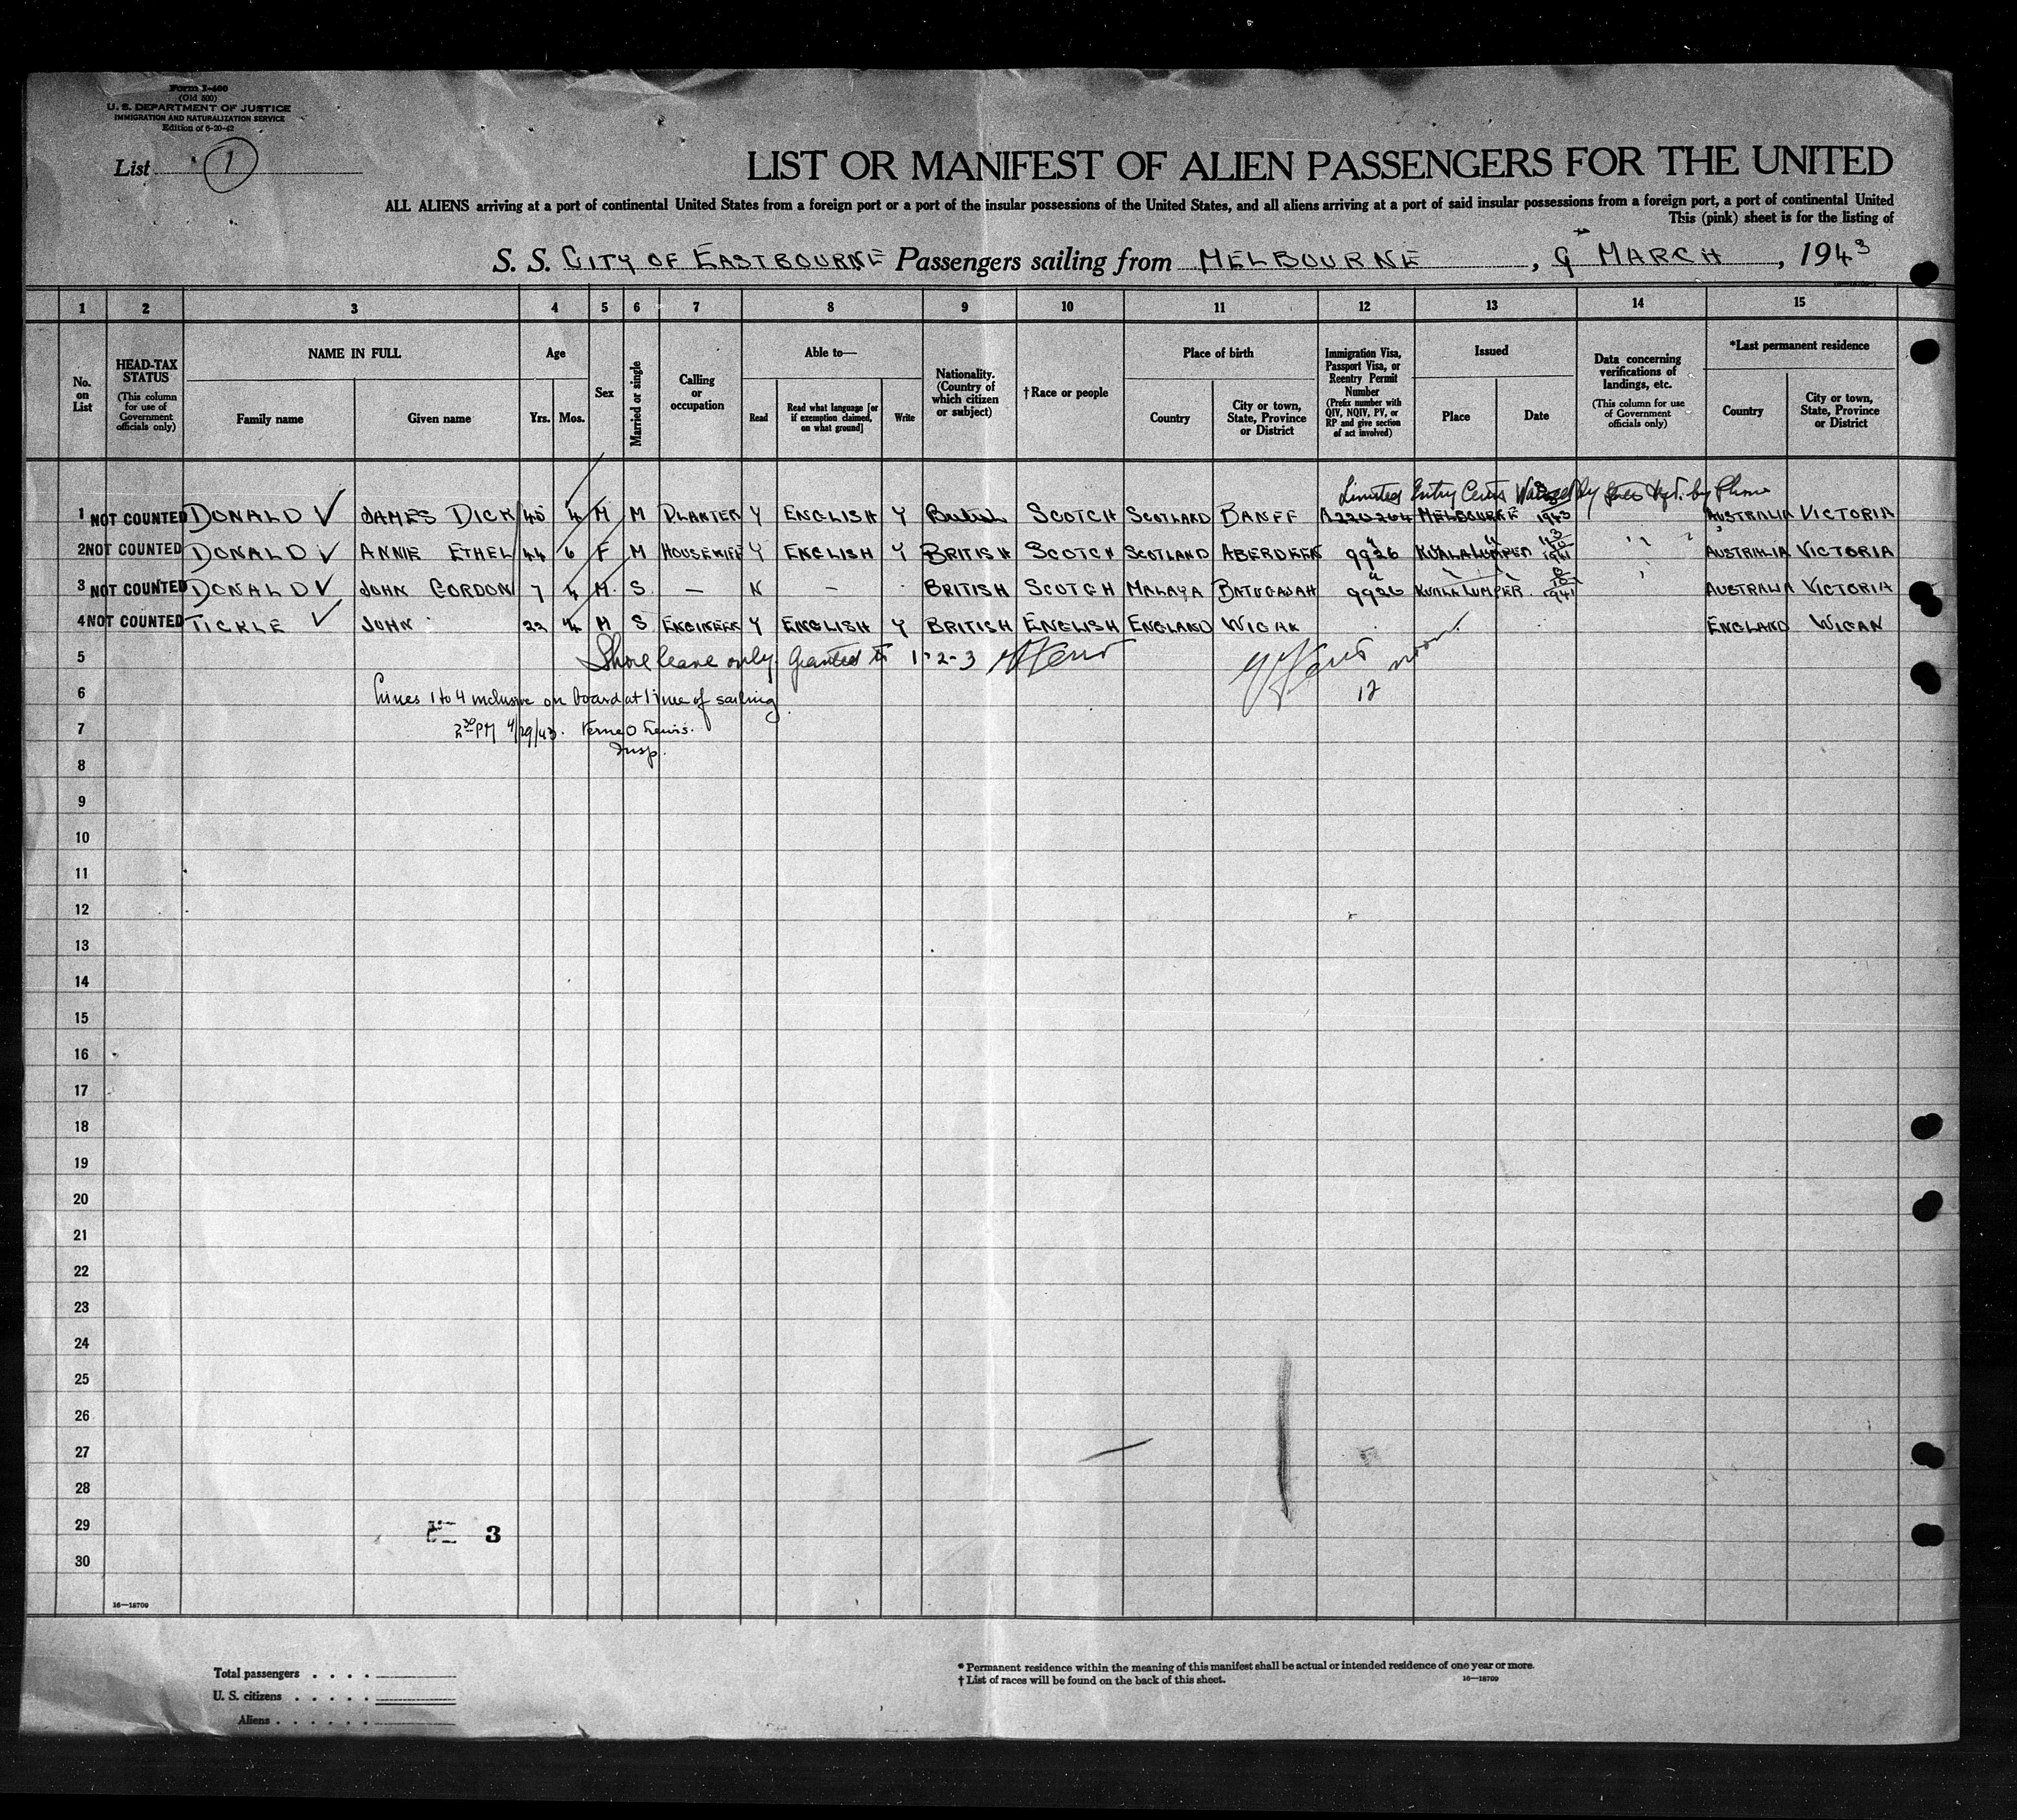 Form I-600
(Old 500)
U. S. DEPARTMENT OF JUSTICE
IMMIGRATION AND NATURALIZATION SERVICE
Edition of 6-20-42
List 1
LIST OR MANIFEST OF ALIEN PASSENGERS FOR THE UNITED
ALL ALIENS arriving at a port of continental United States from a foreign port or a port of the insular possessions of the United States, and all aliens arriving at a port of said insular possessions from a foreign port, a port of continental United
This (pink) sheet is for the listing of
S. S. CITY OF EASTBOURNE Passengers sailing from MELBOURNE, 9th MARCH, 1943
1 2 3 4 5 6 7 8 9 10 11 12 13 14 15
No. on List
HEAD-TAX STATUS
(This column for use of Government officials only)
NAME IN FULL
Family name
Given name
Age
Yrs. Mos.
Sex
Married or single
Calling or occupation
Able to—
Read
Read what language [or if exemption claimed, on what ground]
Write
Nationality. (Country of which citizen or subject)
†Race or people
Place of birth
Country
City or town, State, Province or District
Immigration Visa, Passport Visa, or Reentry Permit Number
(Prefix number with QIV, NQIV, PV, or RP and give section of act involved)
Issued
Place
Date
Data concerning verifications of landings, etc.
(This column for use of Government officials only)
*Last permanent residence
Country
City or town, State, Province or District
Limited Entry Certs Waived by Dept. by Phone
1 NOT COUNTED DONALD JAMES DICK 45 4 M M PLANTER Y ENGLISH Y SCOTCH SCOTLAND BANFF A220264 MELBOURNE 1943 AUSTRALIA VICTORIA
2 NOT COUNTED DONALD ANNIE ETHEL 44 6 F M HOUSEWIFE Y ENGLISH Y BRITISH SCOTCH SCOTLAND ABERDEEN 9926 KUALA LUMPER 1941 AUSTRALIA VICTORIA
3 NOT COUNTED DONALD JOHN GORDON 7 4 M. S. — N — BRITISH SCOTCH MALAYA BATUGAJAH 9926 KUALA LUMPER 1941 AUSTRALIA VICTORIA
4 NOT COUNTED TICKLE JOHN 22 4 M S ENGINEER Y ENGLISH Y BRITISH ENGLISH ENGLAND WIGAN ENGLAND WIGAN
5 Shore leave only Granted to 1-2-3
6 Lines 1 to 4 inclusive on board at time of sailing 12
7 2:30 PM 4/29/43. Verne O Lewis.
Insp.
8
9
10
11
12
13
14
15
16
17
18
19
20
21
22
23
24
25
26
27
28
29
3
30
16—18709
Total passengers
U. S. citizens
Aliens
* Permanent residence within the meaning of this manifest shall be actual or intended residence of one year or more.
† List of races will be found on the back of this sheet.
16—18709